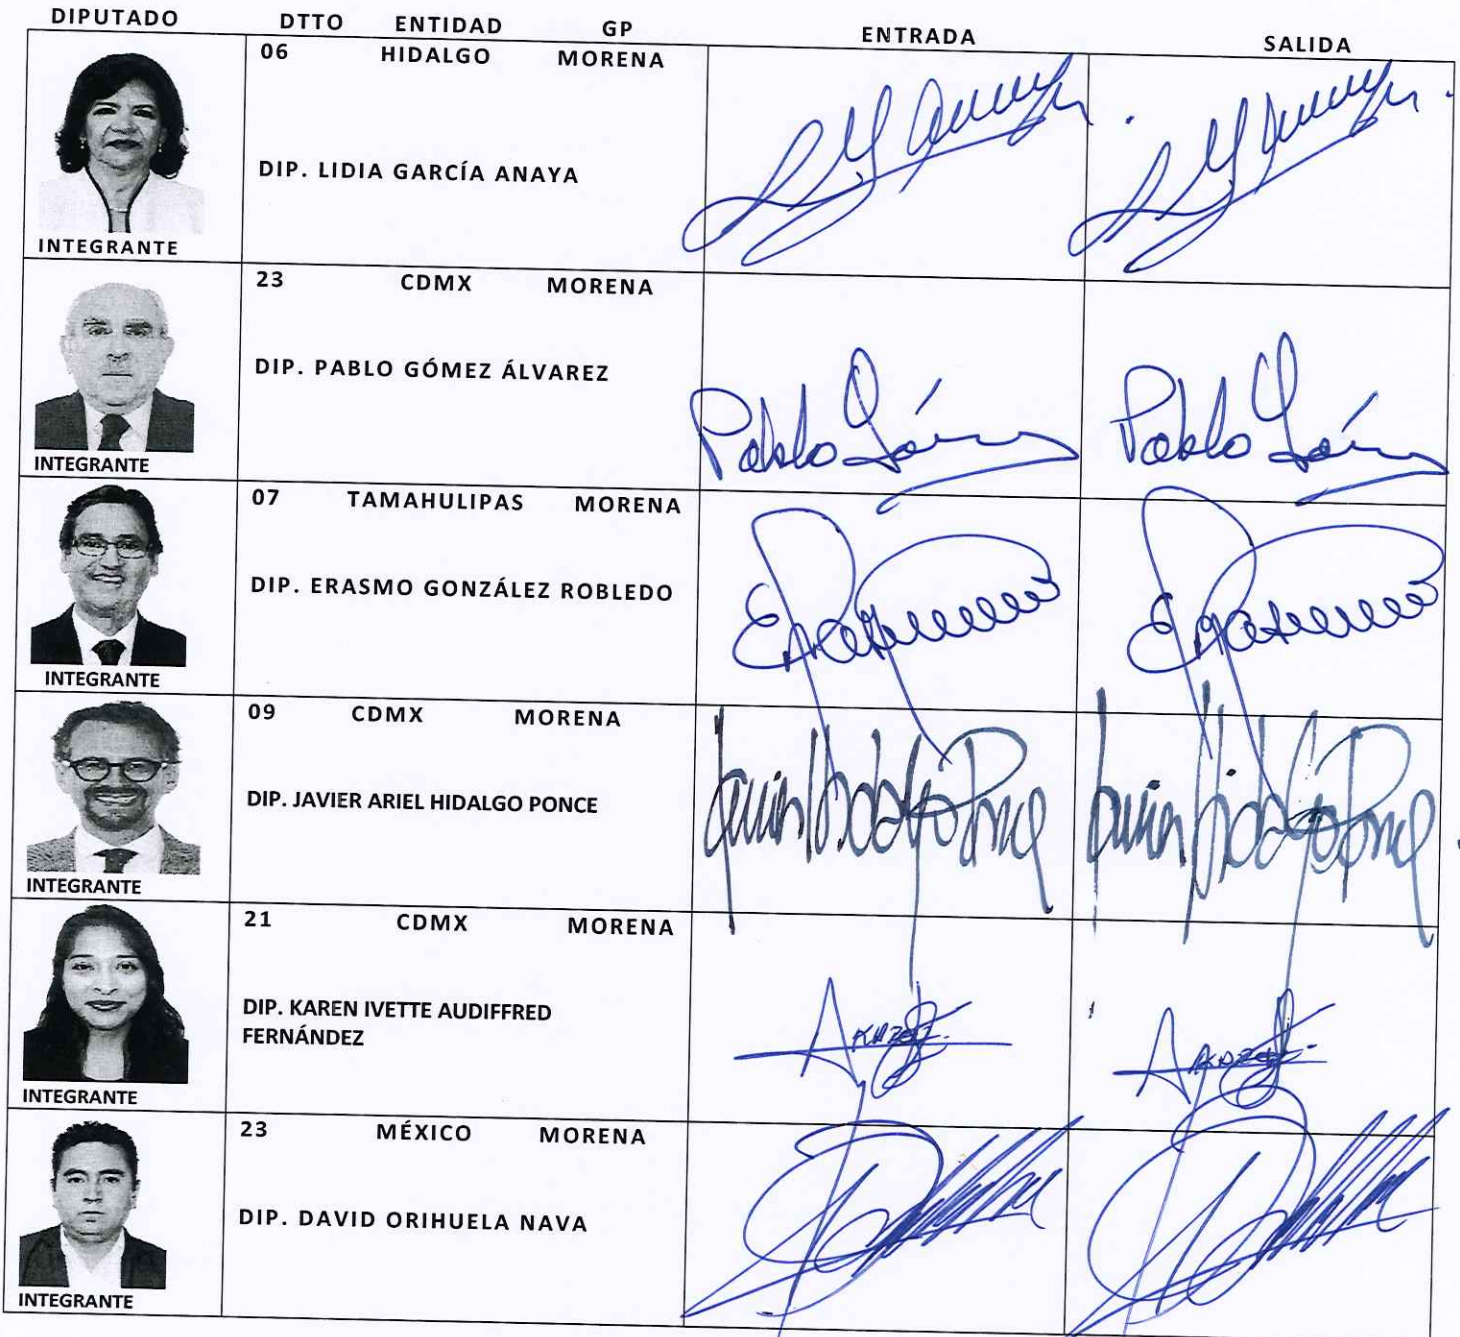 DIPUTADO DTTO ENTIDAD GP ENTRADA SALIDA
06 HIDALGO MORENA
DIP. LIDIA GARCÍA ANAYA
INTEGRANTE
23 CDMX MORENA
DIP. PABLO GÓMEZ ÁLVAREZ
Pablo Góm Pablo Góm
INTEGRANTE
07 TAMAHULIPAS MORENA
DIP. ERASMO GONZÁLEZ ROBLEDO
INTEGRANTE
09 CDMX MORENA
DIP. JAVIER ARIEL HIDALGO PONCE
Javier Hidalgo Ponce Javier Hidalgo Ponce
INTEGRANTE
21 CDMX MORENA
DIP. KAREN IVETTE AUDIFFRED
FERNÁNDEZ
INTEGRANTE
23 MÉXICO MORENA
DIP. DAVID ORIHUELA NAVA
INTEGRANTE